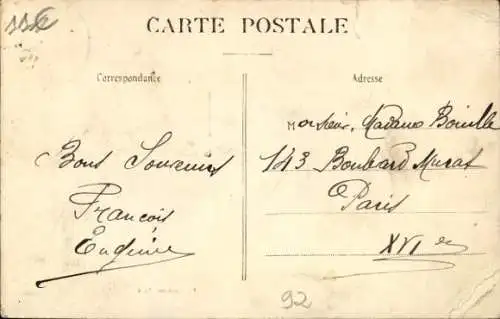 CARTE POSTALE
Correspondance
Adresse
Bons Souvenirs
François
Monsieur, Madame Boville
143 Boulevard Murat
Paris
XVIe
92